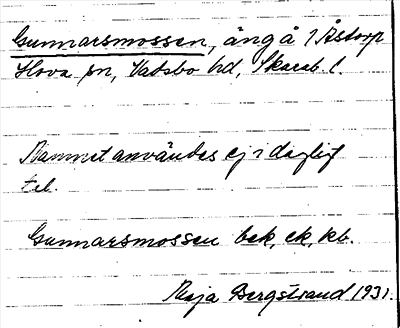 Gunnarsmossen, äng å 1 Åstorp
Hova sn, Vadsbo hd, Skarab. l.
Namnet användes ej i dagligt
tal.
Gunnarsmossen bek, ek, kb.
Maja Bergstrand 1931.